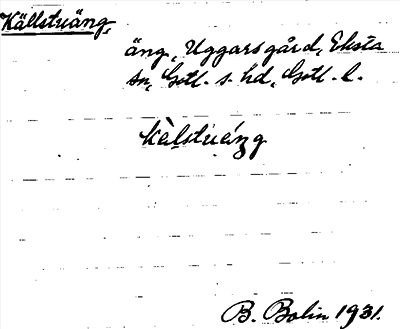 Källstuäng,
äng, Uggarsgård, Eksta
sn, Gotl. s. hd, Gotl. l.
kàlstuáŋg
B. Bolin 1931.